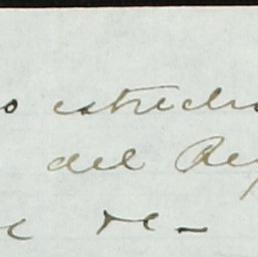 o estrecho
del Rey
e re-